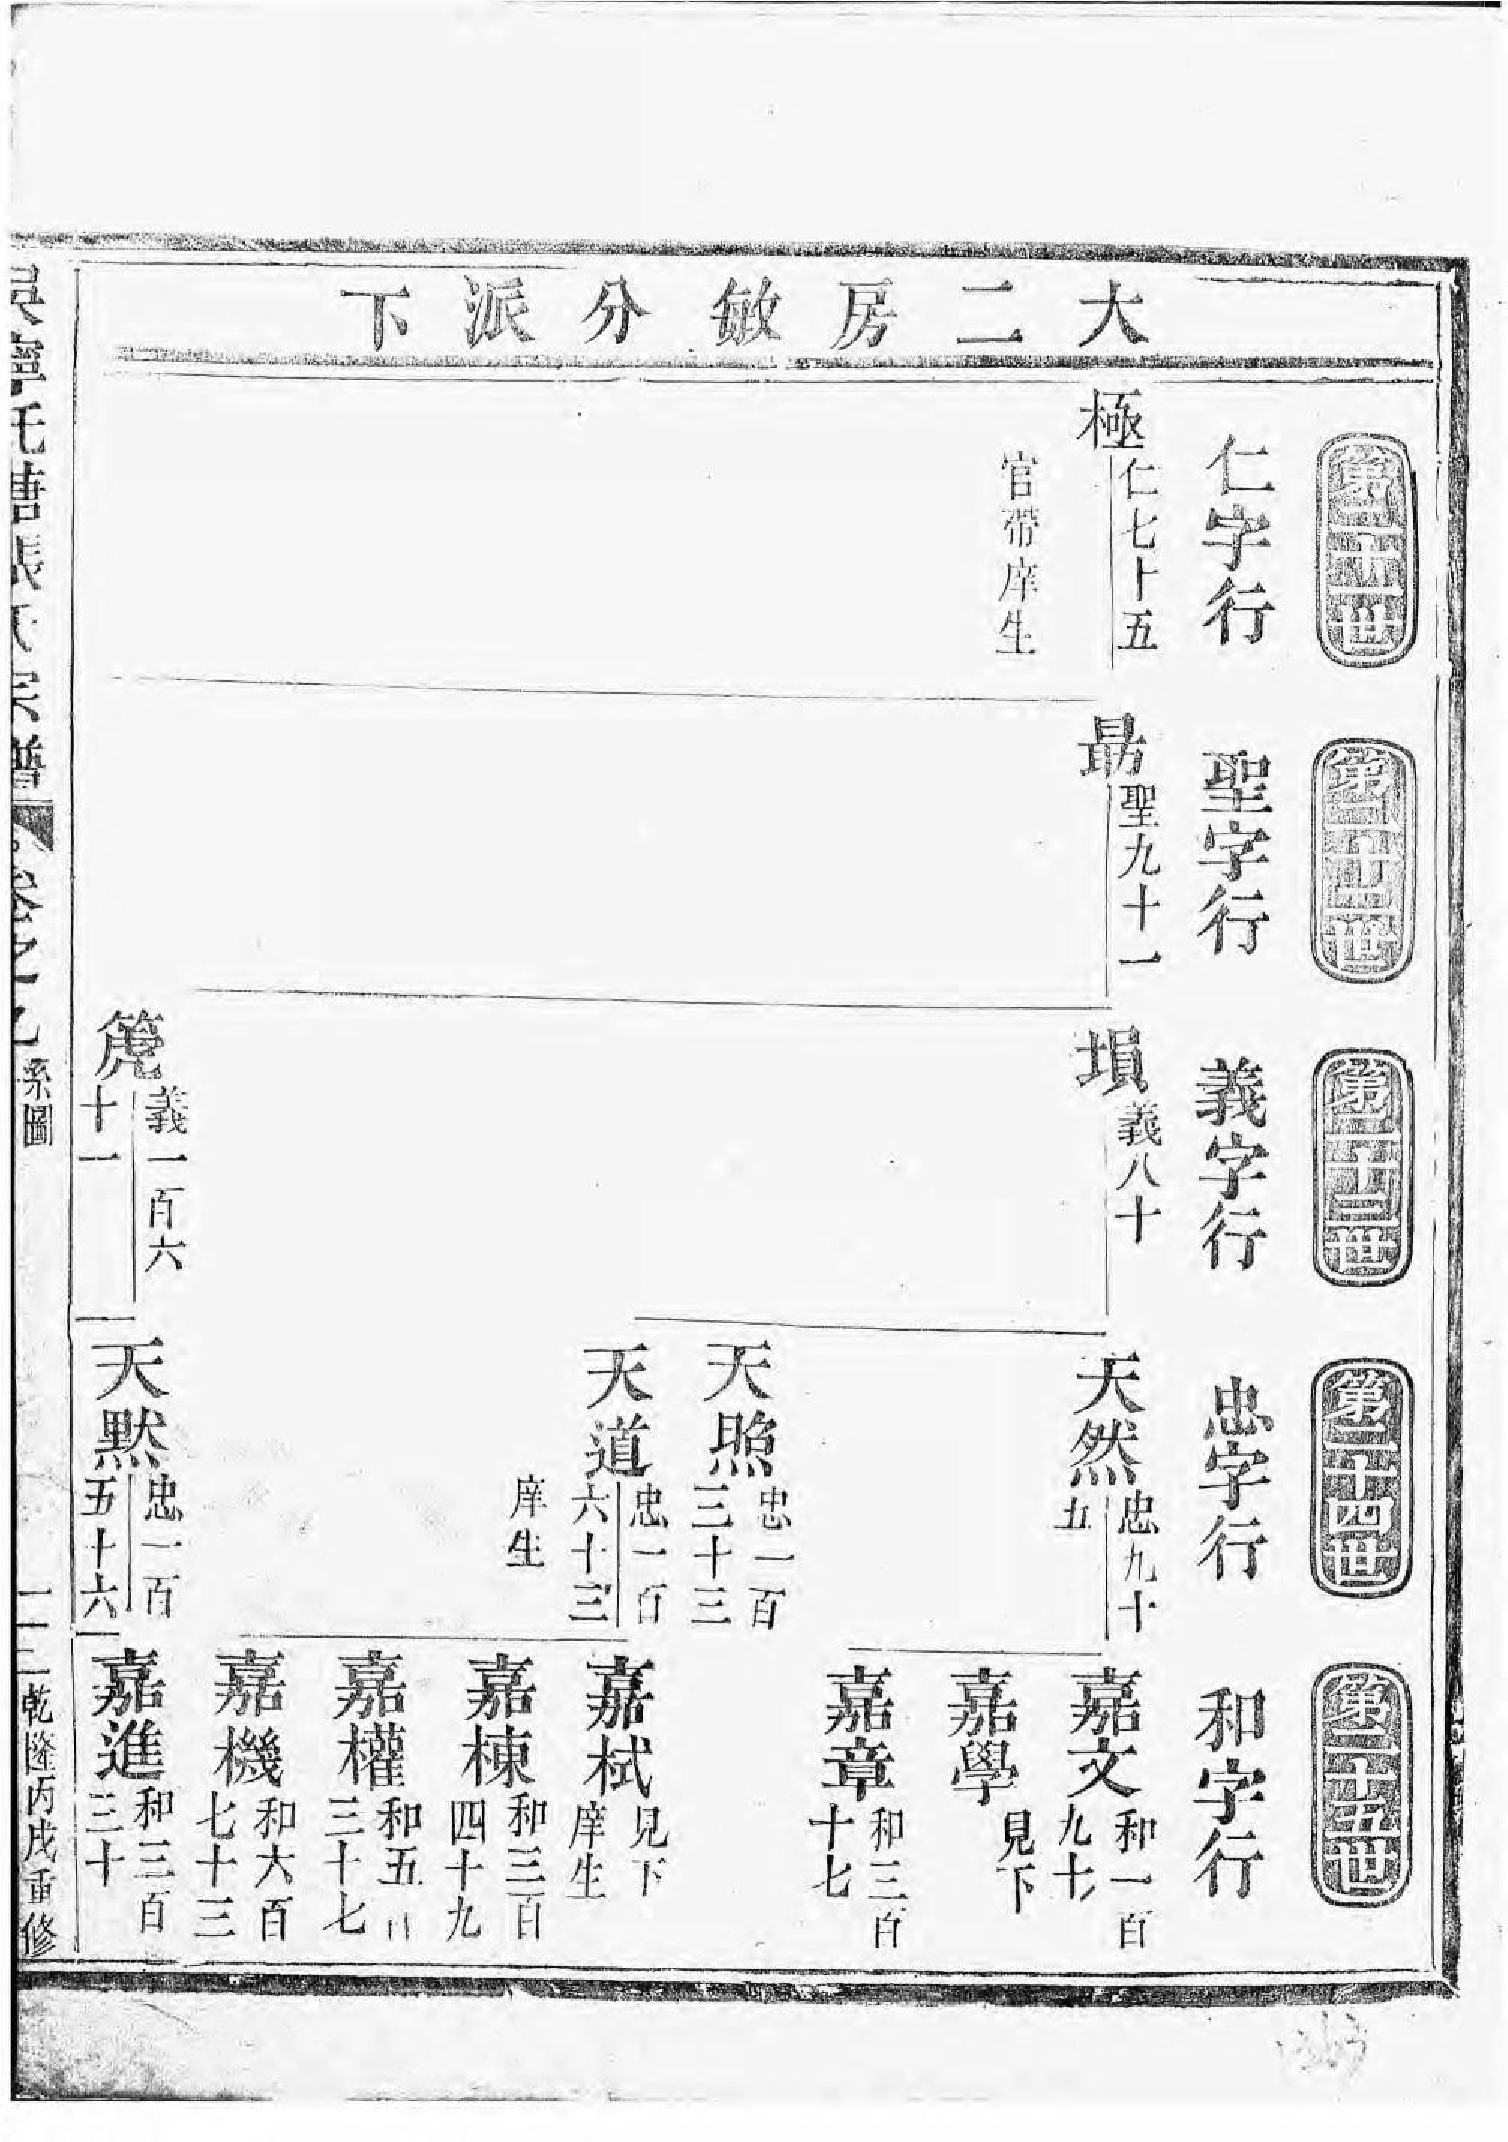 大二房敏分派下
第二十一世
仁字行
極
仁七十五
官帶庠生
第二十二世
聖字行
最
聖九十一
第二十三世
義字行
塤
義八十
箎
義一百六
十一
第二十四世
忠字行
天然
忠九十
五
天照
忠一百
三十三
天道
忠一百
六十三
庠生
天默
忠一百
五十六
第二十五世
和字行
嘉文
和一百
九十
嘉學
見下
嘉章
和三百
十七
嘉栻
見下
庠生
嘉棟
和三百
四十九
嘉權
和五百
三十七
嘉機
和六百
七十三
嘉進
和三百
三十
吳寧托塘張氏宗譜
卷之九
系圖
乾隆丙戌重修